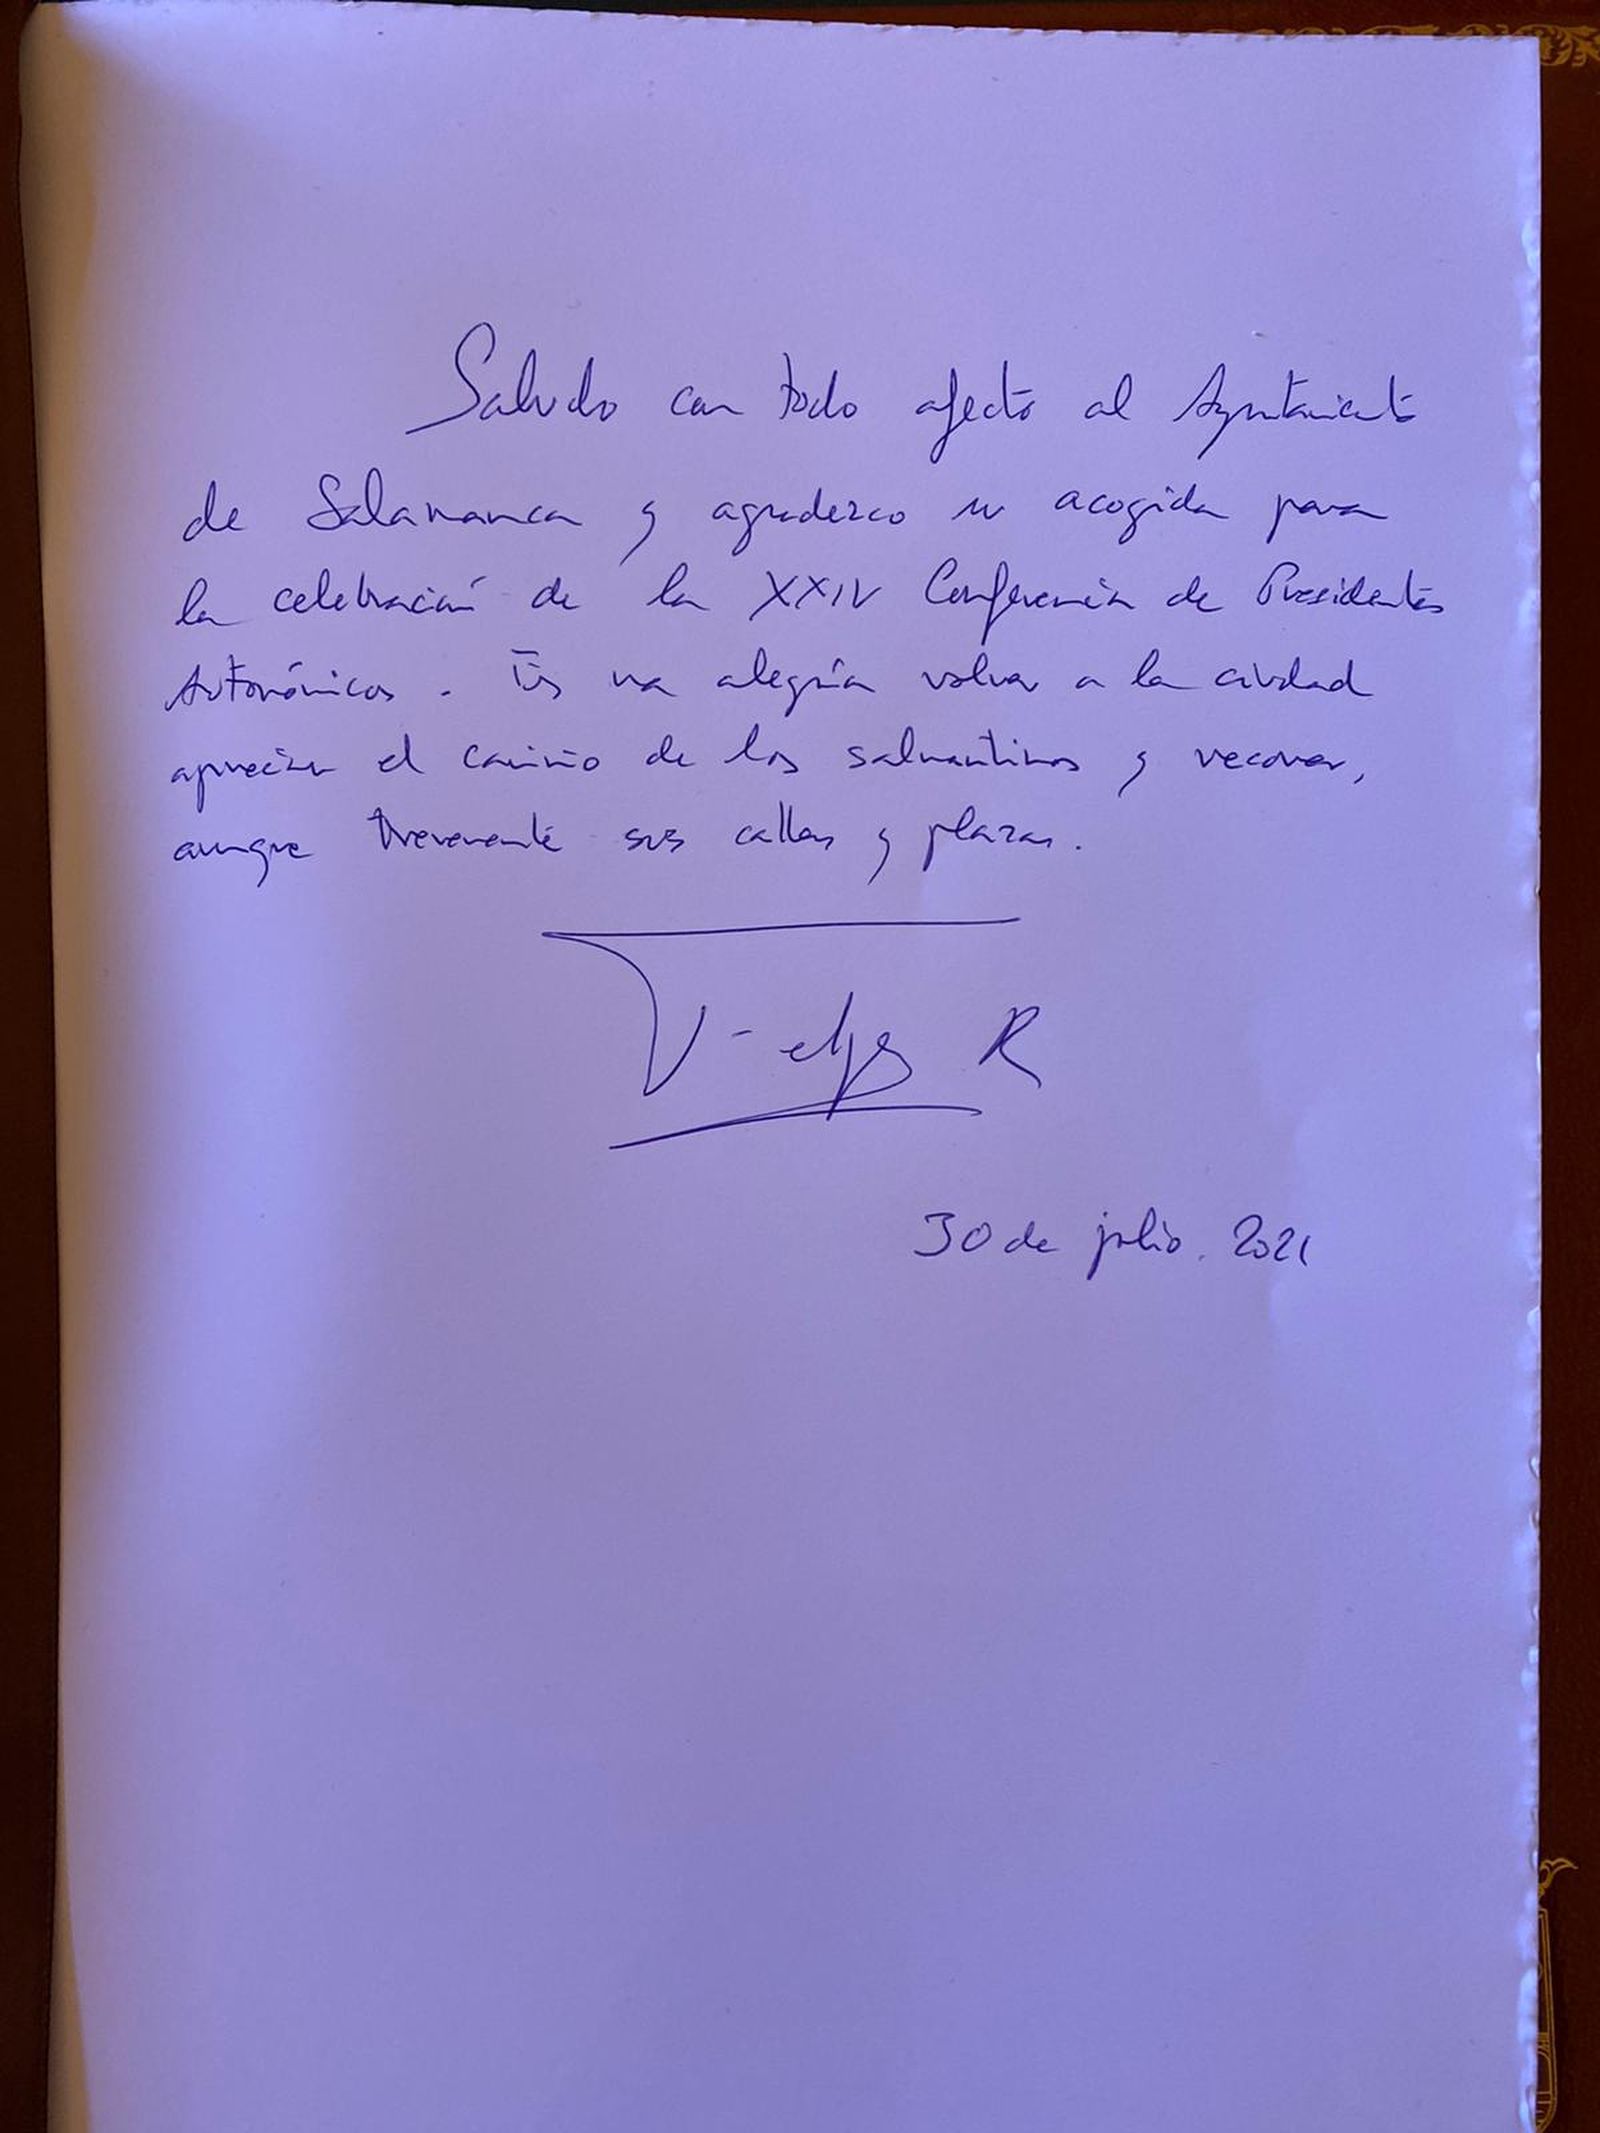 Saludo con todo afecto al Ayuntamiento
de Salamanca y agradezco su acogida para
la celebración de la XXIV Conferencia de Presidentes
Autonómicos. Es una alegría volver a la ciudad
apreciar el cariño de los salmantinos y recorrer,
aunque brevemente sus calles y plazas.
Felipe R
30 de julio. 2021